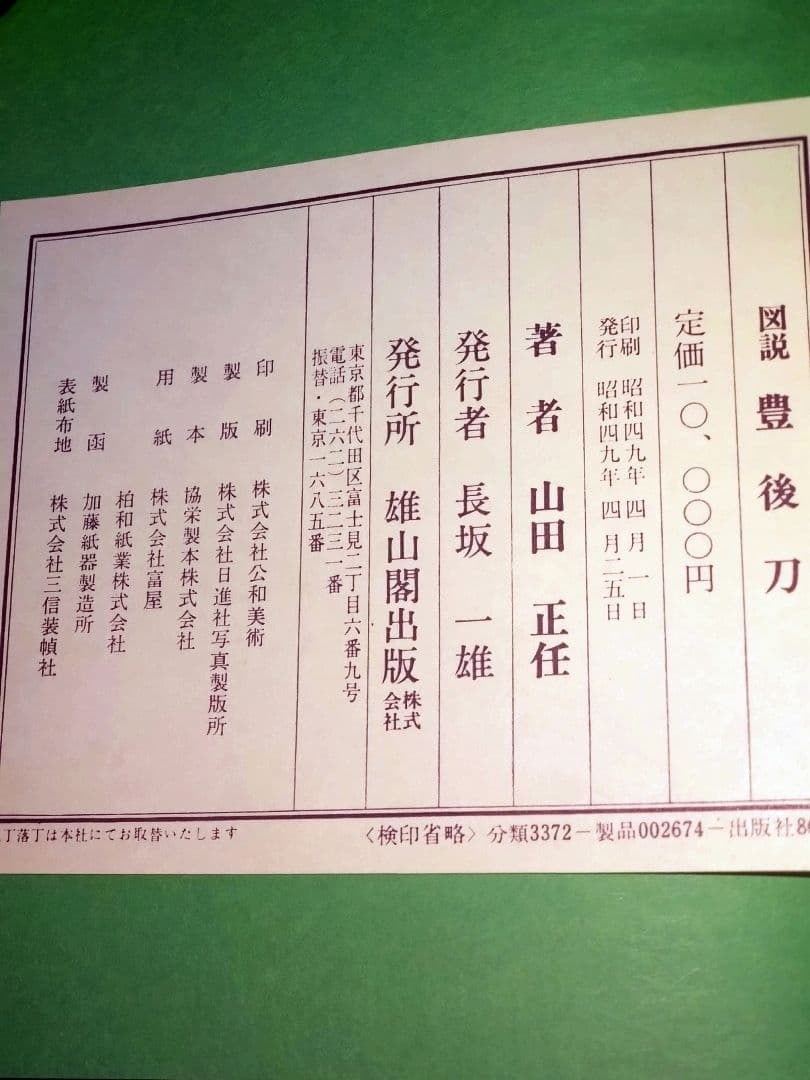 図説 豊後刀
定価一〇、〇〇〇円
印刷 昭和四九年 四月 一日
発行 昭和四九年 四月二五日
著者 山田 正任
発行者 長坂 一雄
発行所 雄山閣出版株式会社
東京都千代田区富士見二丁目六番九号
電話(二六二)三二三一番
振替・東京一六八五番
印刷 株式会社公和美術
製版 株式会社日進社写真製版所
製本 協栄製本株式会社
用紙 株式会社富屋
柏和紙業株式会社
製函 加藤紙器製造所
表紙布地 株式会社三信装幀社
丁落丁は本社にてお取替いたします
〈検印省略〉分類3372-製品002674-出版社8